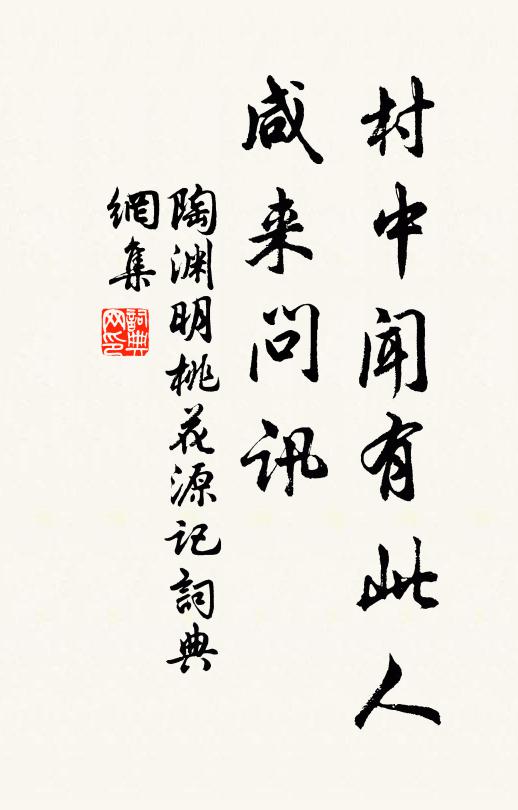 村中闻有此人
咸来问讯
陶渊明桃花源记詞典
網集
詞典网印